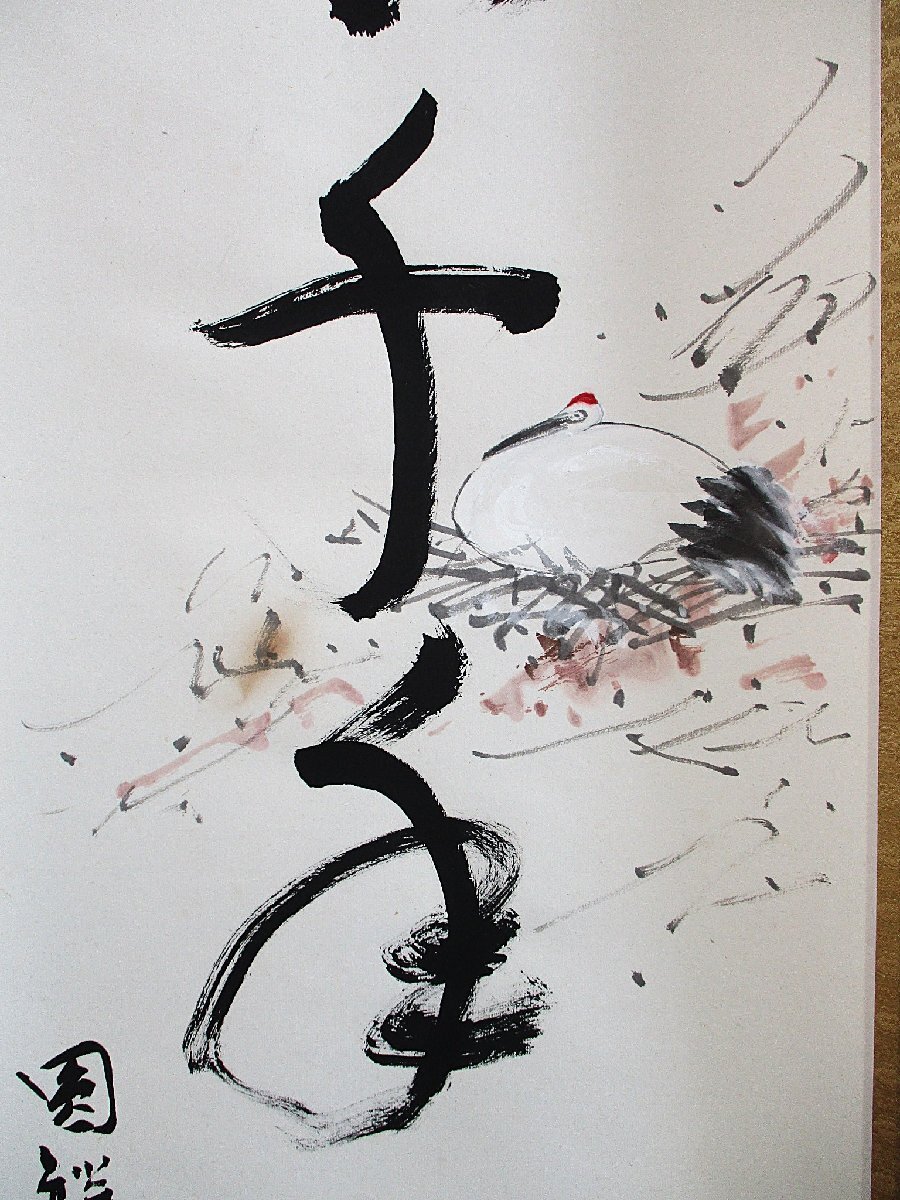 千年
圓